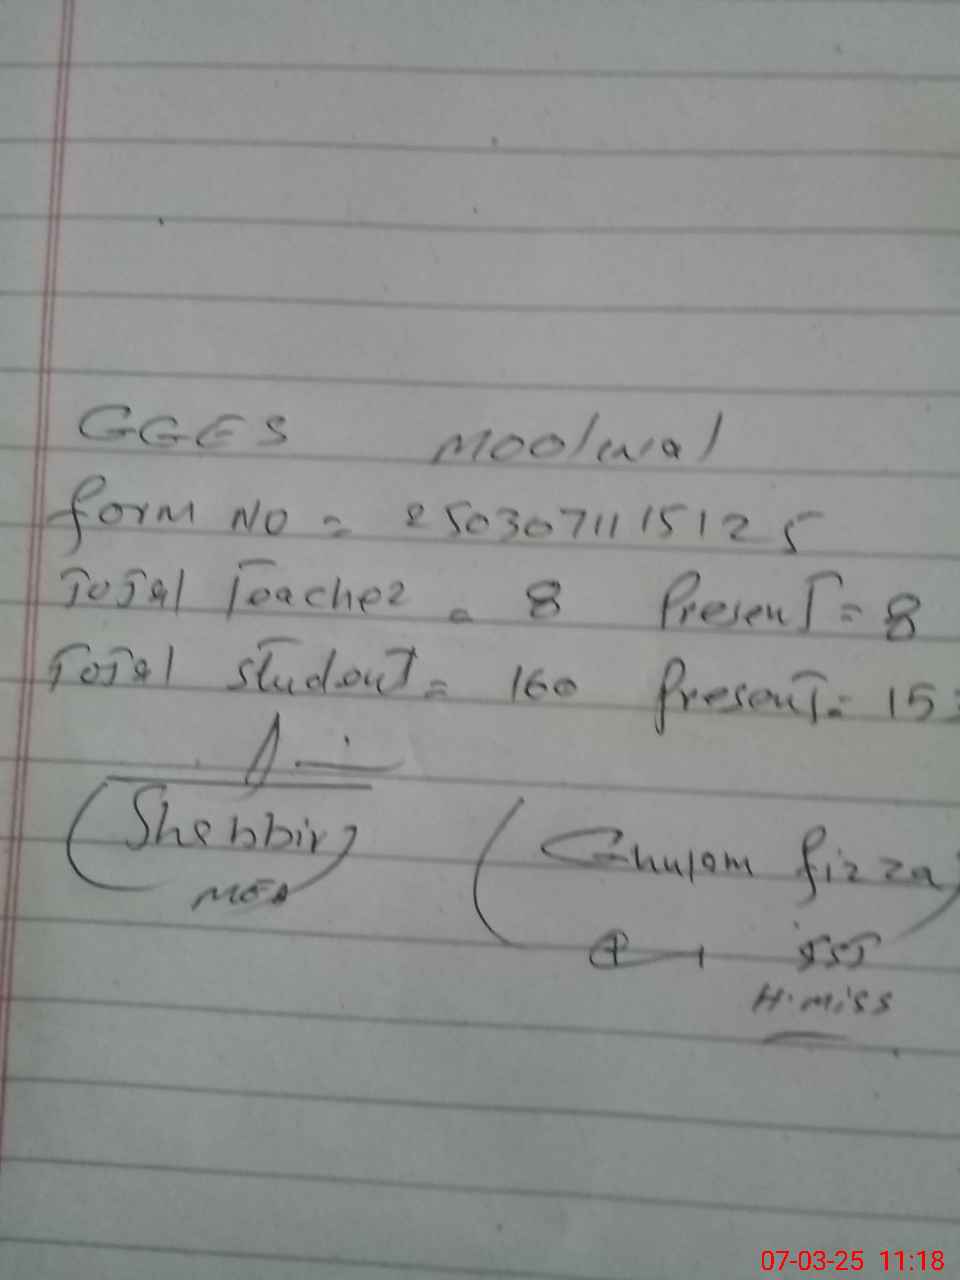 GGES Moolwal
Form NO = 250307111 5125
Total Teacher = 8 Present = 8
Total Student = 160 Present = 15
(Shabbir)
MEA
(Ghulam Fizza)
SST
H.miss
07-03-25 11:18